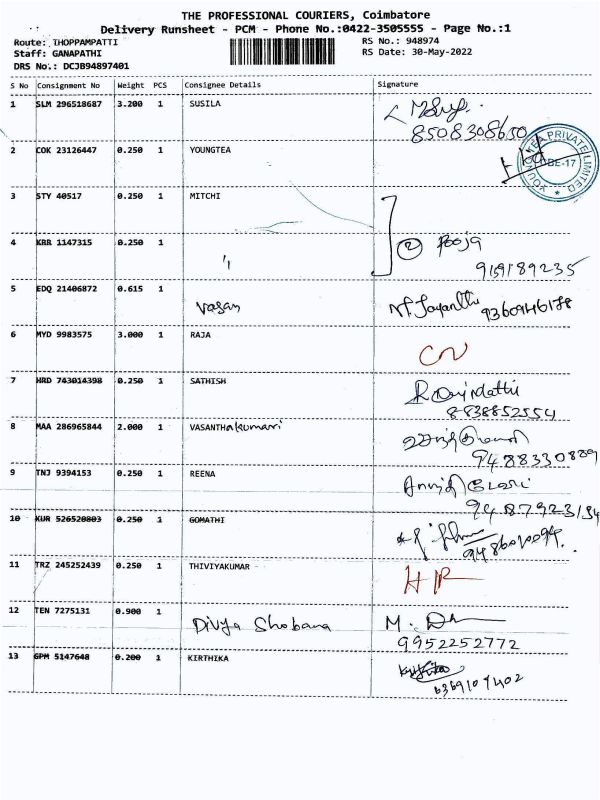 THE PROFESSIONAL COURIERS, Coimbatore
Delivery Runsheet - PCM - Phone No.:0422-3505555 - Page No.:1
Route: THOPPAMPATTI RS No.: 948974
Staff: GANAPATHI RS Date: 30-May-2022
DRS No.: DCJB94897401
S No Consignment No Weight PCS Consignee Details Signature
1 SLM 296518687 3.200 1 SUSILA
8508308650
2 COK 23126447 0.250 1 YOUNGTEA
YOUNG TEA PRIVATE LIMITED
3 STY 40517 0.250 1 MITCHI
4 KRR 1147315 0.250 1 " 2 Pooja
9159189235
5 EDQ 21406872 0.615 1 Vasan Jayanthi 9360946178
6 MYD 9983575 3.000 1 RAJA
CN
7 HRD 743014398 0.250 1 SATHISH
8838852554
8 MAA 286965844 2.000 1 VASANTHAkumari
9488330889
9 TNJ 9394153 0.250 1 REENA
10 KUR 526520803 0.250 1 GOMATHI
11 TRZ 245252439 0.250 1 THIVIYAKUMAR
12 TEN 7275131 0.900 1 Divya Shobana M.
9952252772
13 GPM 5147648 0.200 1 KIRTHIKA Kirthika